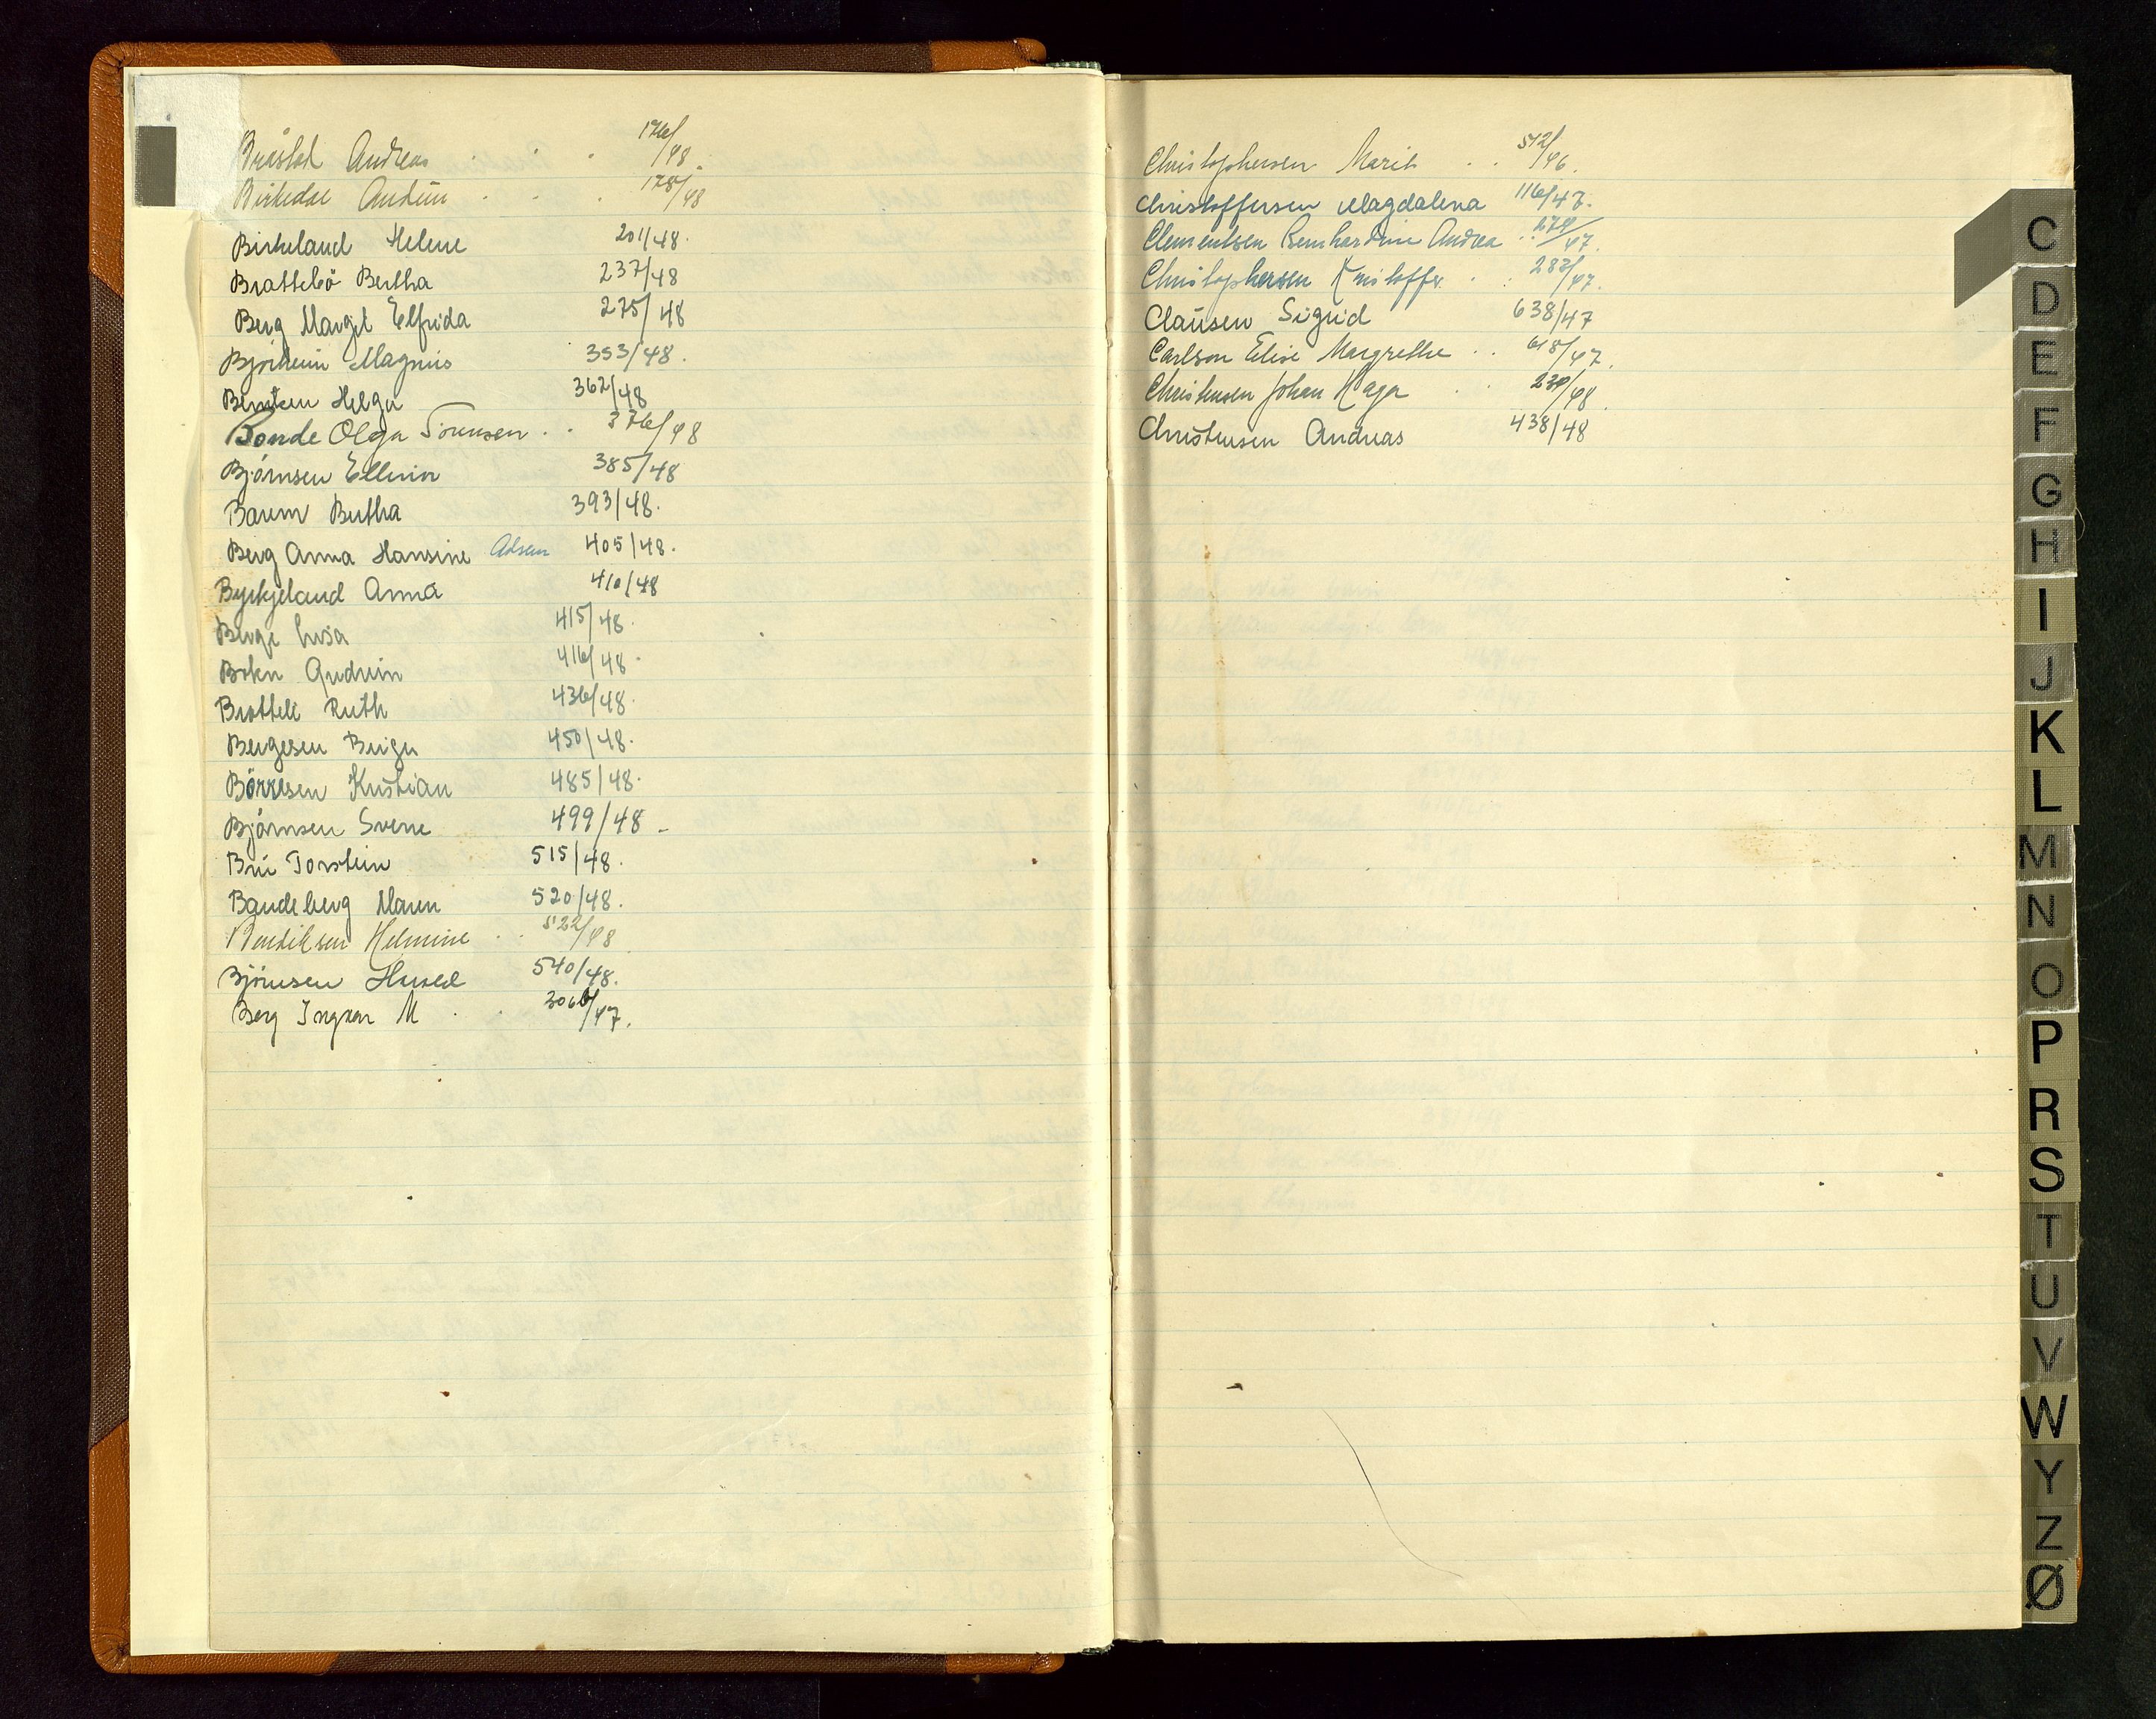 Bråstad Andreas . . . 176/48.
Birkedal Audun . . . 178/48
Birkeland Helene 201/48.
Brattebö Bertha 237/48
Berg Margit Elfrida 275/48
Björheim Magnus 353/48.
Berntsen Helga 362/48
Bonde Olga Sörensen . . 376/48
Björnsen Ellevin 385/48
Barem Bertha 393/48.
Berg Anna Hansine Adsen 405/48.
Byrkjeland Anna 410/48
Berge Lusa 415/48.
Boken Gudrun 416/48.
Brotteli Ruth 436/48.
Bergesen Birger 450/48.
Börresen Kristian 485/48.
Björnsen Svene 499/48.
Bru Torstein 515/48.
Baudeberg Maren 520/48.
Bendiksen Helmine . . 522/48
Björnsen Harald 540/48.
Berg Ingvar M . . 306/47.
Christophersen Marit . . 512/46.
Christoffersen Magdalena 116/47.
Clementsen Bernhardine Andrea . . 274/47.
Christophersen Kristoffer . . 283/47.
Clausen Sigrid 638/47
Carlson Elise Margrethe . . 618/47.
Christensen Johan Hager . . 230/48.
Christensen Andreas 438/48
C
D
E
F
G
H
I
J
K
L
M
N
O
P
R
S
T
U
V
W
Y
Z
Ø